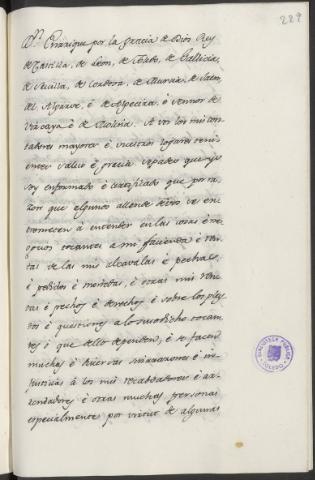 229
Dn. Enrrique por la gracia de Dios Rey
de Castilla, de Leon, de Toledo, de Gallicia,
de Sevilla, de Cordova, de Murcia, de Jaen,
del Algarve, é de Algecira, é Sennor de
Vizcaya é de Molina. A vos los mis con-
tadores mayores é vuestros logares tenien-
tes salud é gracia. Sepades que yo
soy enformado é certificado que por ra-
zon que algunos allende dellos se en-
tremeten á entender en las cosas é ne-
gocios tocantes a mi facienda é ren-
tas de las mis alcavalas é pechos,
é pedidos é monedas, é otras mis ren-
tas é pechos é derechos é sobre los pley-
tos é questiones a lo susodicho tocan-
tes é que dello dependen, é se facen
muchas é diversas sinrazones é in-
justicias á los mis recabdadores é ar-
rendadores é otras muchas personas
especialmente por virtud de algunas
BIBLIOTECA PUBLICA
TOLEDO